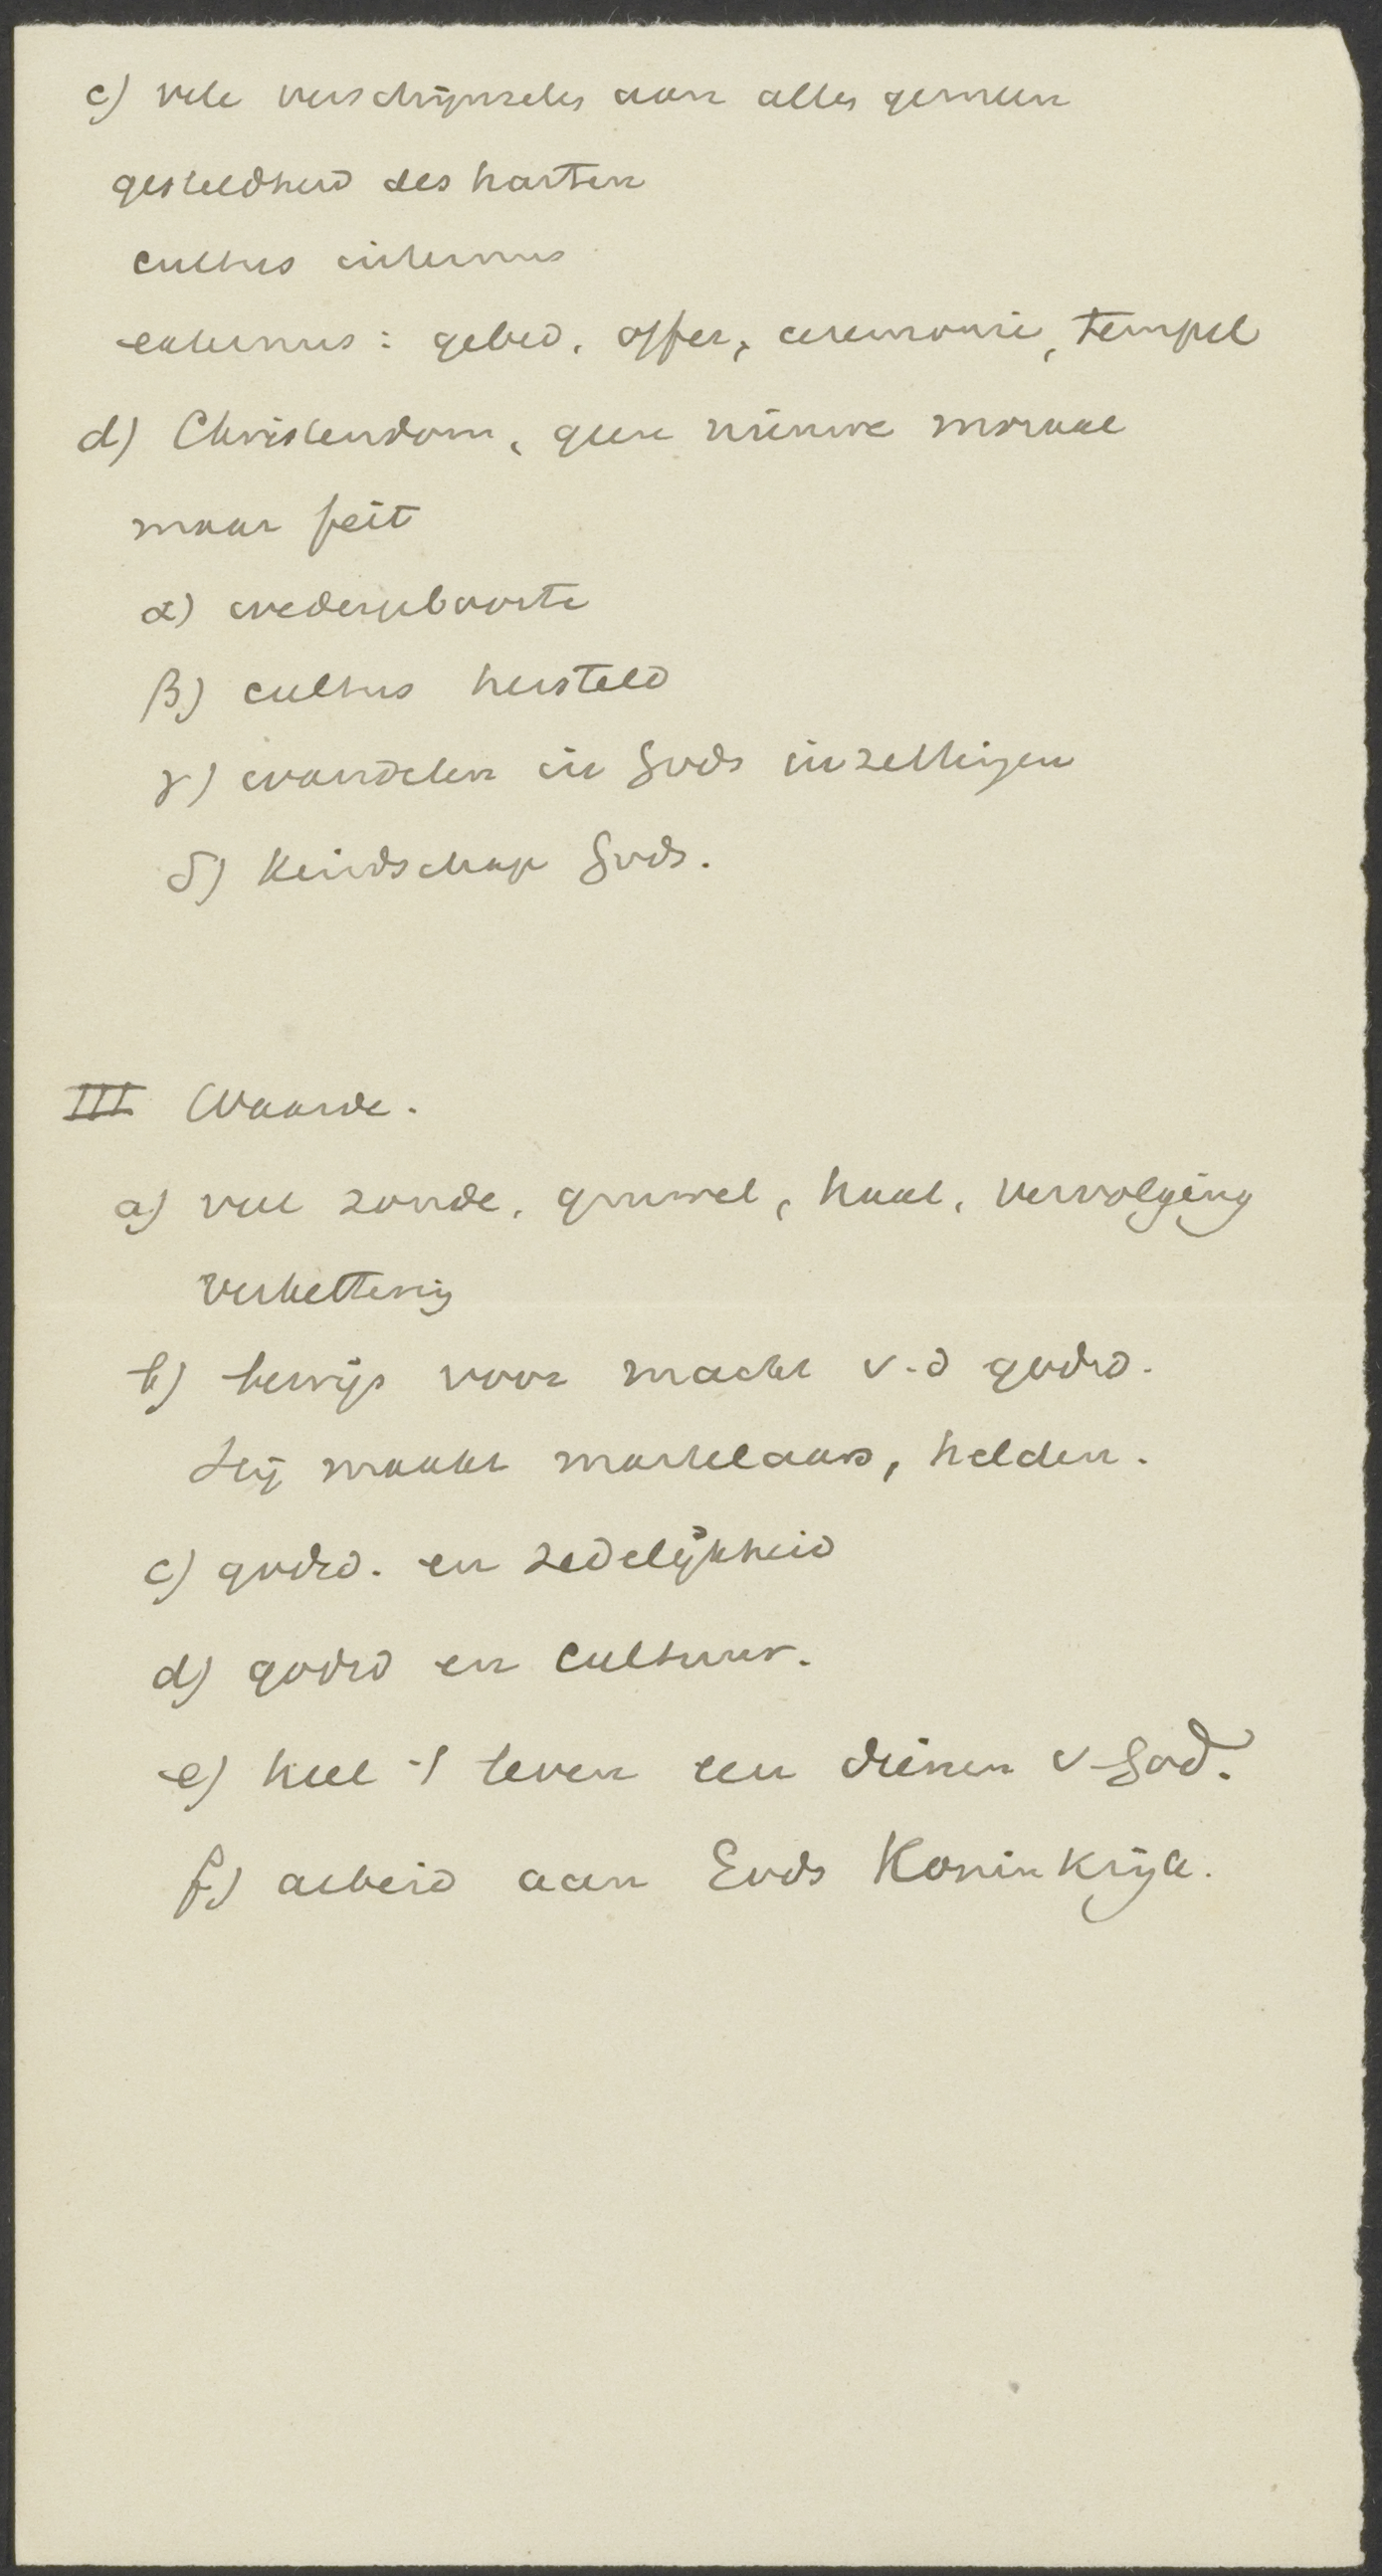 c) vele verschijnselen aan alles gemeen
gesteldheid des harten
cultus internus
externus: gebed, offer, ceremonie, tempel
d) Christendom, geen nieuwe moraal
maar feit
α) wedergeboorte
β) cultus hersteld
γ) wandelen in Gods inzettingen
δ) Kindschap Gods.
III Waarde.
a) veel zonde, gruwel, haat, vervolging
verkettering
b) bewijs voor macht v.d godsd.
Zij maakt martelaars, helden.
c) godsd. en zedelijkheid
d) godsd en cultuur.
e) heel 't leven een dienen v God.
f) arbeid aan Gods Koninkrijk.